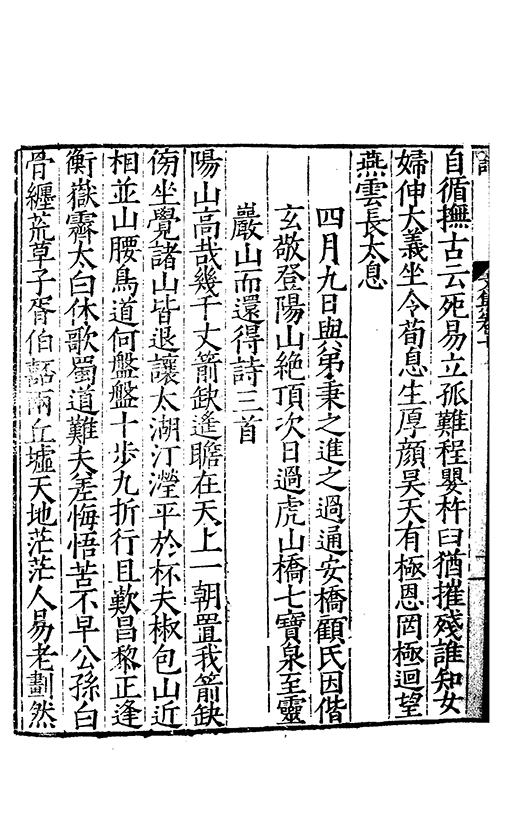 自循撫古云死易立孤難程嬰杵臼猶摧殘誰知女
婦伸大義坐令荀息生厚顔昊天有極恩罔極迴望
燕雲長太息
四月九日與弟秉之進之過通安橋顧氏因偕
玄敬登陽山絶頂次日過虎山橋七寶泉至靈
巖山而還得詩三首
陽山高哉幾千丈箭缺遥瞻在天上一朝置我箭缺
傍坐覺諸山皆退讓太湖汀瀅平於杯夫椒包山近
相並山腰鳥道何盤盤十歩九折行且歎昌黎正逢
衡嶽霽太白休歌蜀道難夫差悔悟苦不早公孫白
骨纏荒草子胥伯嚭兩丘墟天地茫茫人易老劃然